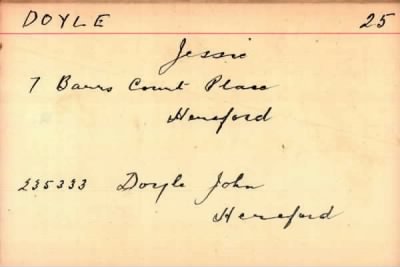 DOYLE 25
Jessie
7 Barrs Court Place
Hereford
235333 Doyle John
Hereford